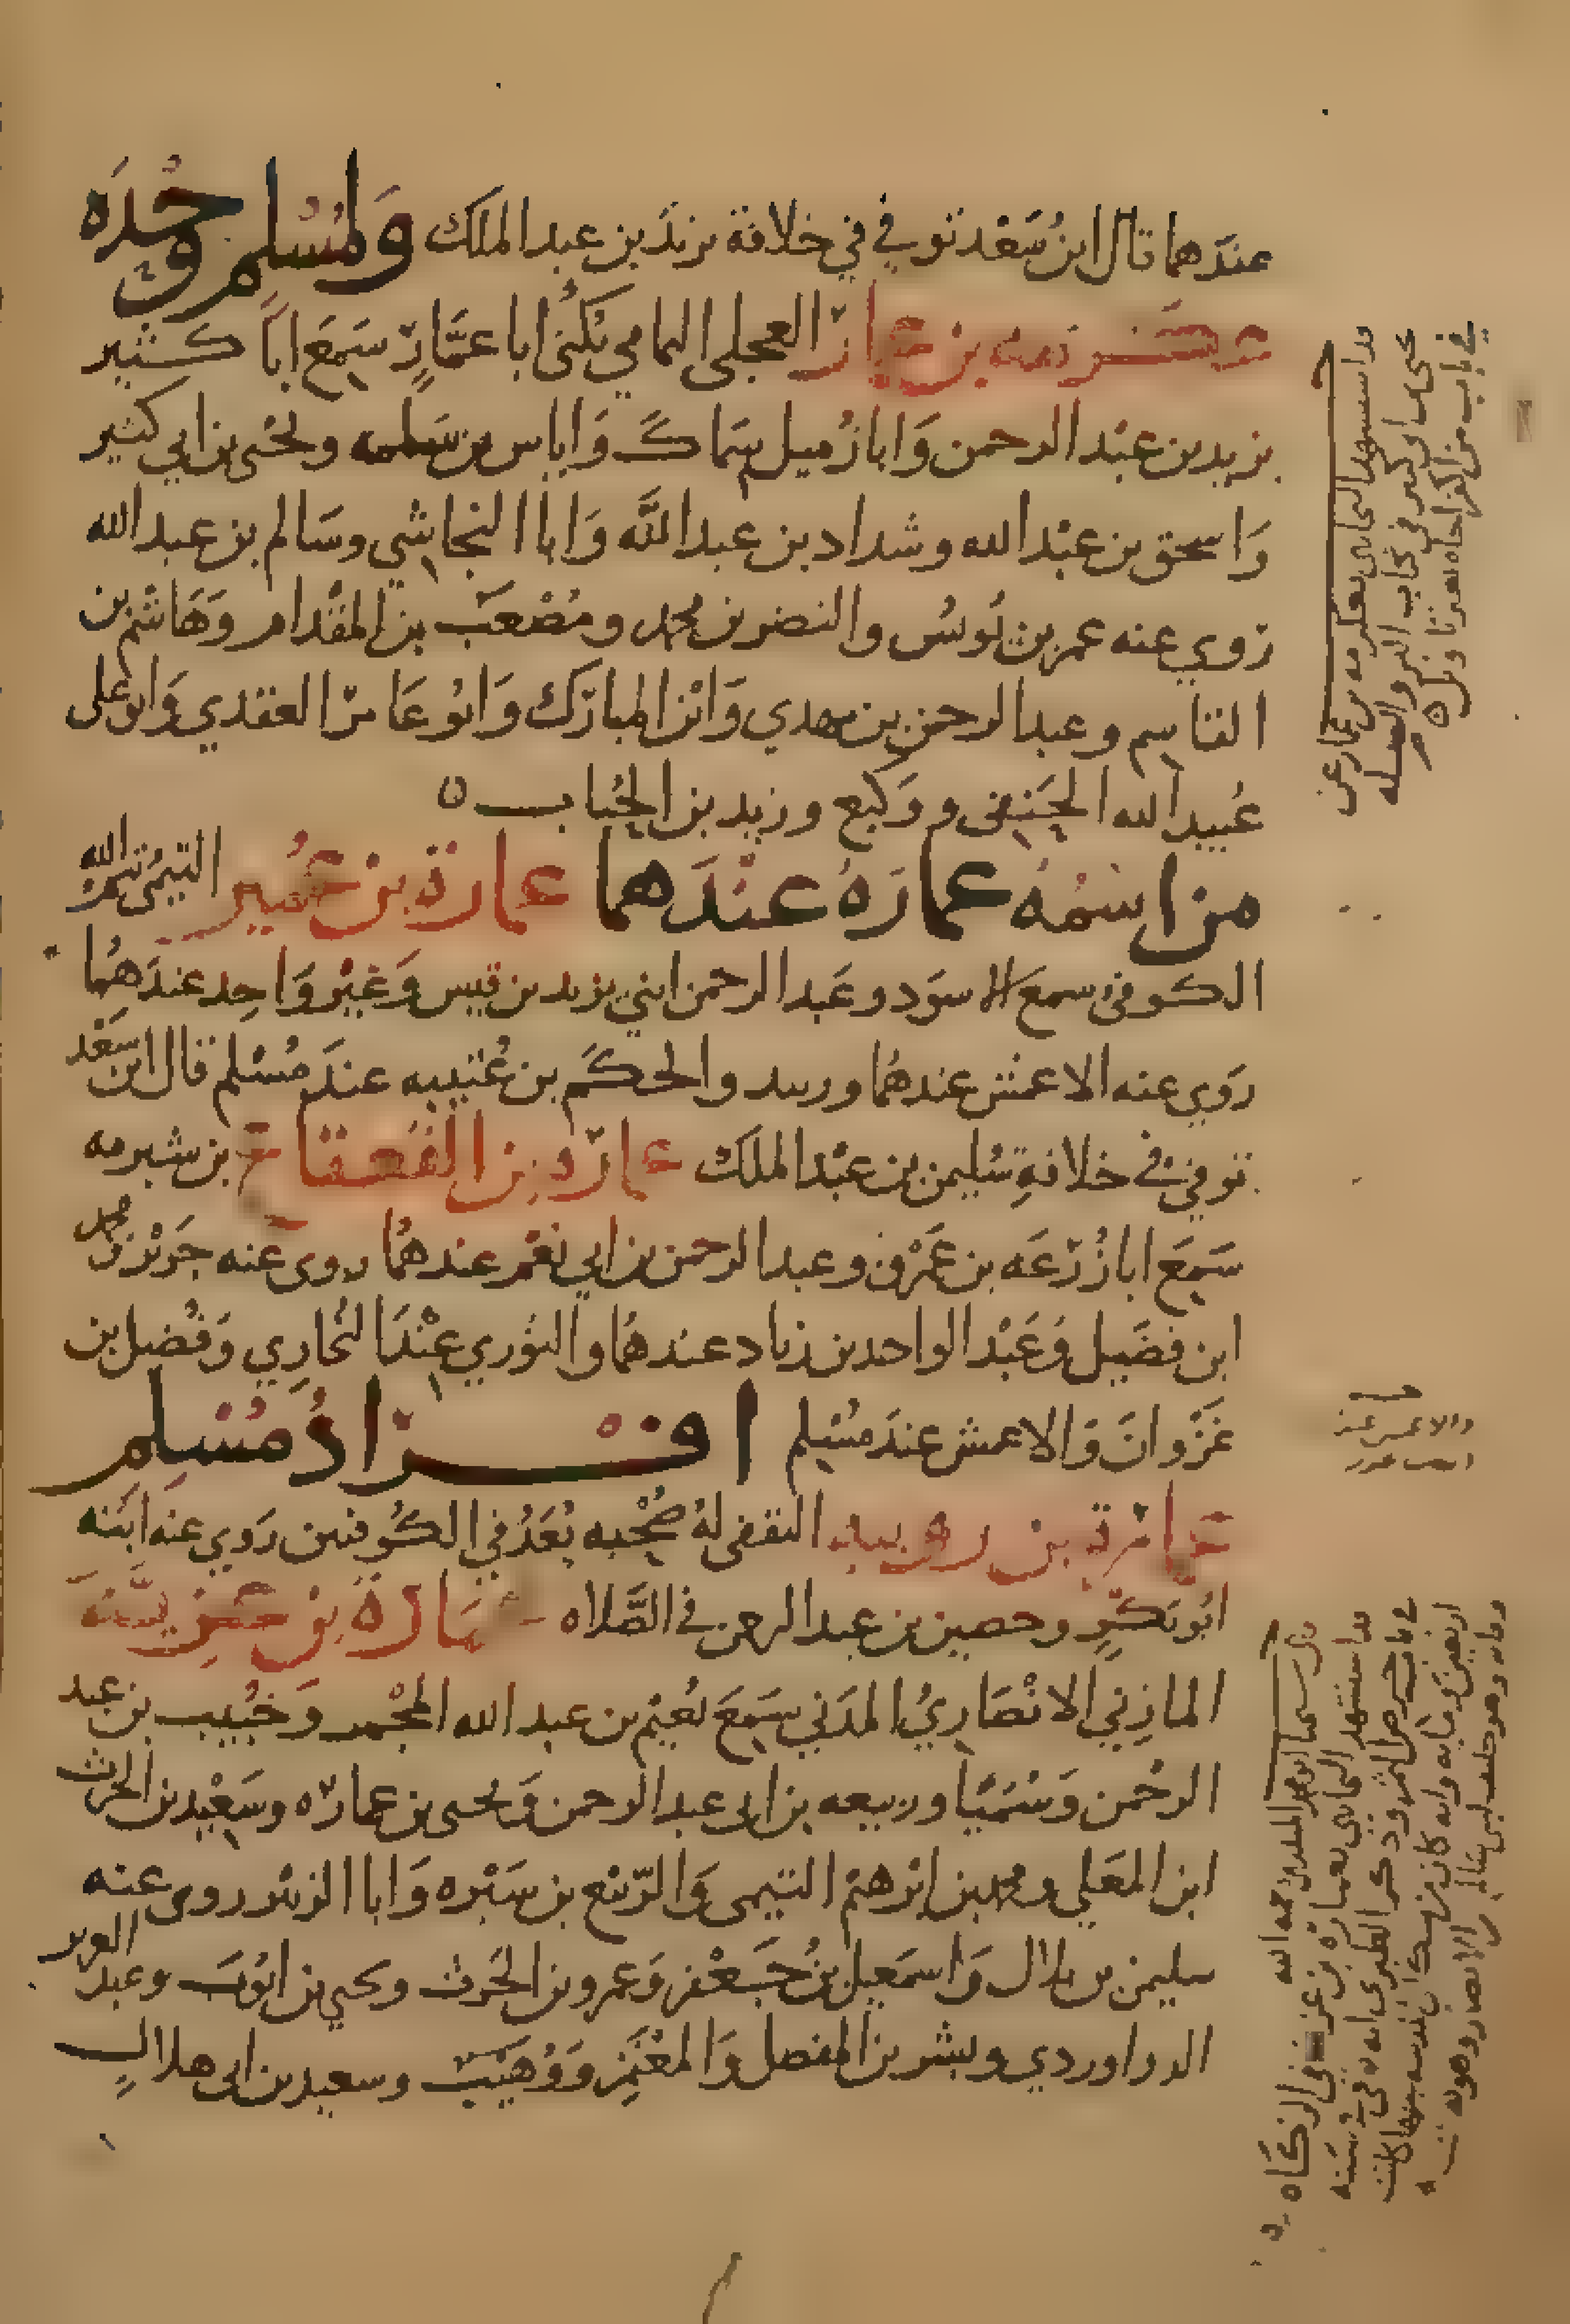 عندهما قال ابن سعد توفي في خلافة يزيد بن عبد الملك ولمسلم وحده
عكرمه بن عمار العجلي اليمامي يكنى ابا عمار سمع ابا كثير
يزيد بن عبد الرحمن وابا زميل سماك واياس بن سلمه ويحيى بن ابي كثير
واسحق بن عبد الله وشداد بن عبد الله وابا النجاشي وسالم بن عبد الله
روي عنه عمر بن يونس والنضر بن محمد ومصعب بن المقدام وهاشم بن
القاسم وعبد الرحمن بن مهدي وابن المبارك وابو عامر العقدي وابو على
عبيد الله الحنفي ووكيع وزيد بن الحباب ه
من اسمه عماره عندهما عمارة بن عمير التيمي تيم الله
الكوفي سمع الاسود وعبد الرحمن ابني يزيد بن قيس وغير واحد عندهما
روي عنه الاعمش عندهما وزبيد والحكم بن عتيبه عند مسلم قال ابن سعد
توفي في خلافة سليمن بن عبد الملك عماره بن القعقاع بن شبرمه
سمع ابا زرعه بن عمرو وعبد الرحمن بن ابي نعم عندهما روى عنه جرير ومحمد
ابن فضيل وعبد الواحد بن زياد عندهما والثوري عند البخاري وفضيل بن
غزوان والاعمش عند مسلم افراد مسلم
عمارة بن رويبه الثقفي له صحبه يعد في الكوفيين روي عنه ابنه
ابو بكر وحصين بن عبد الرحمن في الصلاه عمارة بن غزية
المازني الانصاري المدني سمع نعيم بن عبد الله المجمر وخبيب بن عبد
الرحمن وسميا وربيعه بن ابي عبد الرحمن ويحيى بن عماره وسعيد بن الحرث
ابن المعلي ومحمد بن ابرهيم التيمي والربيع بن سبره وابا الزبير روى عنه
سليمن بن بلال واسمعيل بن جعفر وعمرو بن الحرث ويحيى بن ايوب وعبد العزيز
الدراوردي وبشر بن المفضل والمعتمر ووهيب وسعيد بن ابي هلال
استشهد البخاري بعكرمه بن عمار عن
يحيى بن ابي كثير في كتاب البر والصله
في باب من اكفر اخاه بغير تاويل ه
والاعمش عند
رحمه الله
استشهد البخاري بعمارة بن غزية في الزكاه
في باب خرص الثمر وذكر الطبري انه توفي سنة
اربعين ومايه وانه كان